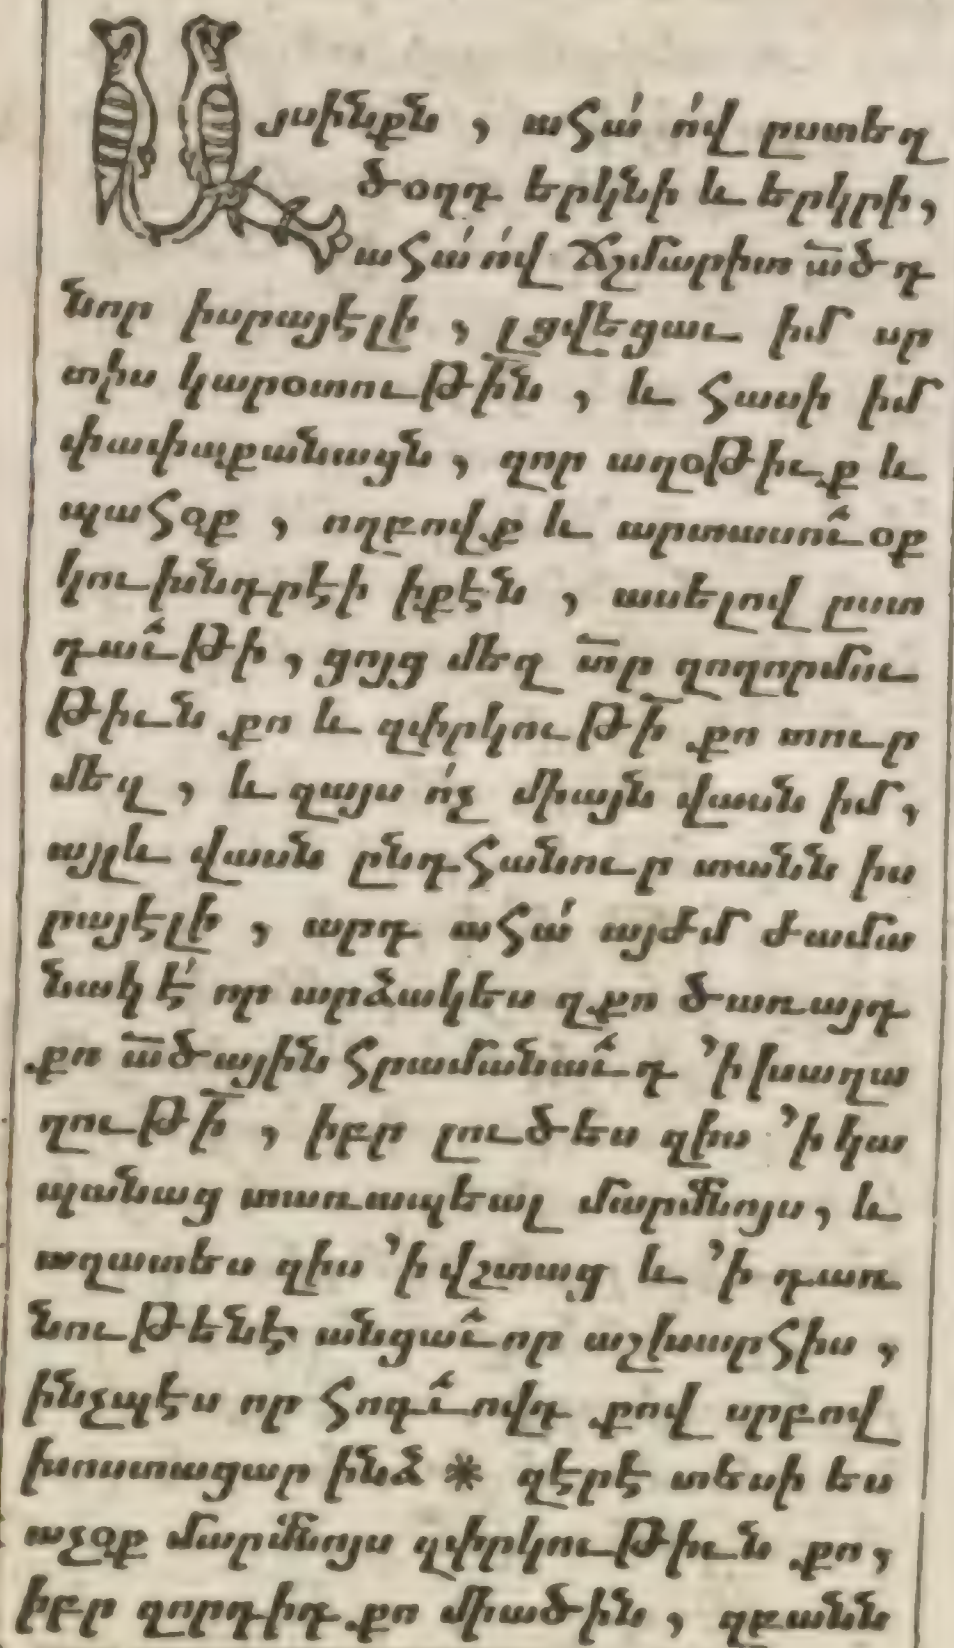 Այսինքն, ահա՛ ո՛վ ըստեղ
ծօղդ երկնի և երկրի,
ահա՛ ո՛վ ճշմարիտ ա̅ծդ
նոր իսրայէլի, լցվեցաւ իմ սր
տիս կարօտութի̅ն, և հասի իմ
փափաքանացն, զոր աղօթիւք և
պահօք, ողբովք և արտասու՟օք
կու խնդրէի իքէն, ասելով ըստ
դաւ՟թի, ցոյց մեզ տ̅ր զողորմու
թիւն քո և զփրկութի̅ քո տուր
մեզ, և զայս ո՛չ միայն վասն իմ,
այլև վասն ընդհանուր տանն իս
րայէլի, արդ ահա՛ այժմ ժամա
նակ է՛ որ արձակես զքո ծառայդ
քո ա̅ծային հրամանաւ՟դ ՚ի խաղա
ղութի̅, իբր լուծես զիս ՚ի կա
պանաց տառապեալ մարմնոյս, և
ազատես զիս ՚ի վշտաց և ՚ի դառ
նութենէ անցաւ՟որ աշխարհիս,
ինչպէս որ հոգւ՟ովդ քով սրբով
խոստացար ինձ * զէրէ տեսի ես
աչօք մարմնոյս զփրկութիւն քո,
իբր զորդիդ քո միածին, զբանն